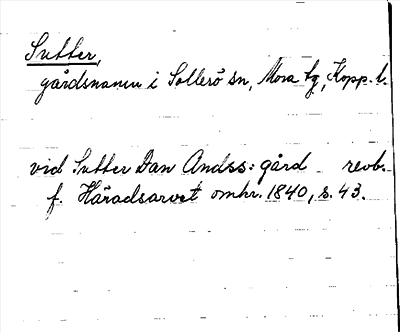 Sutter,
gårdsnamn i Sollerö sn, Mora tg, Kopp. l.
vid Sutter Dan Andss: gård revb.
f. Häradsarvet omkr. 1840, s. 43.